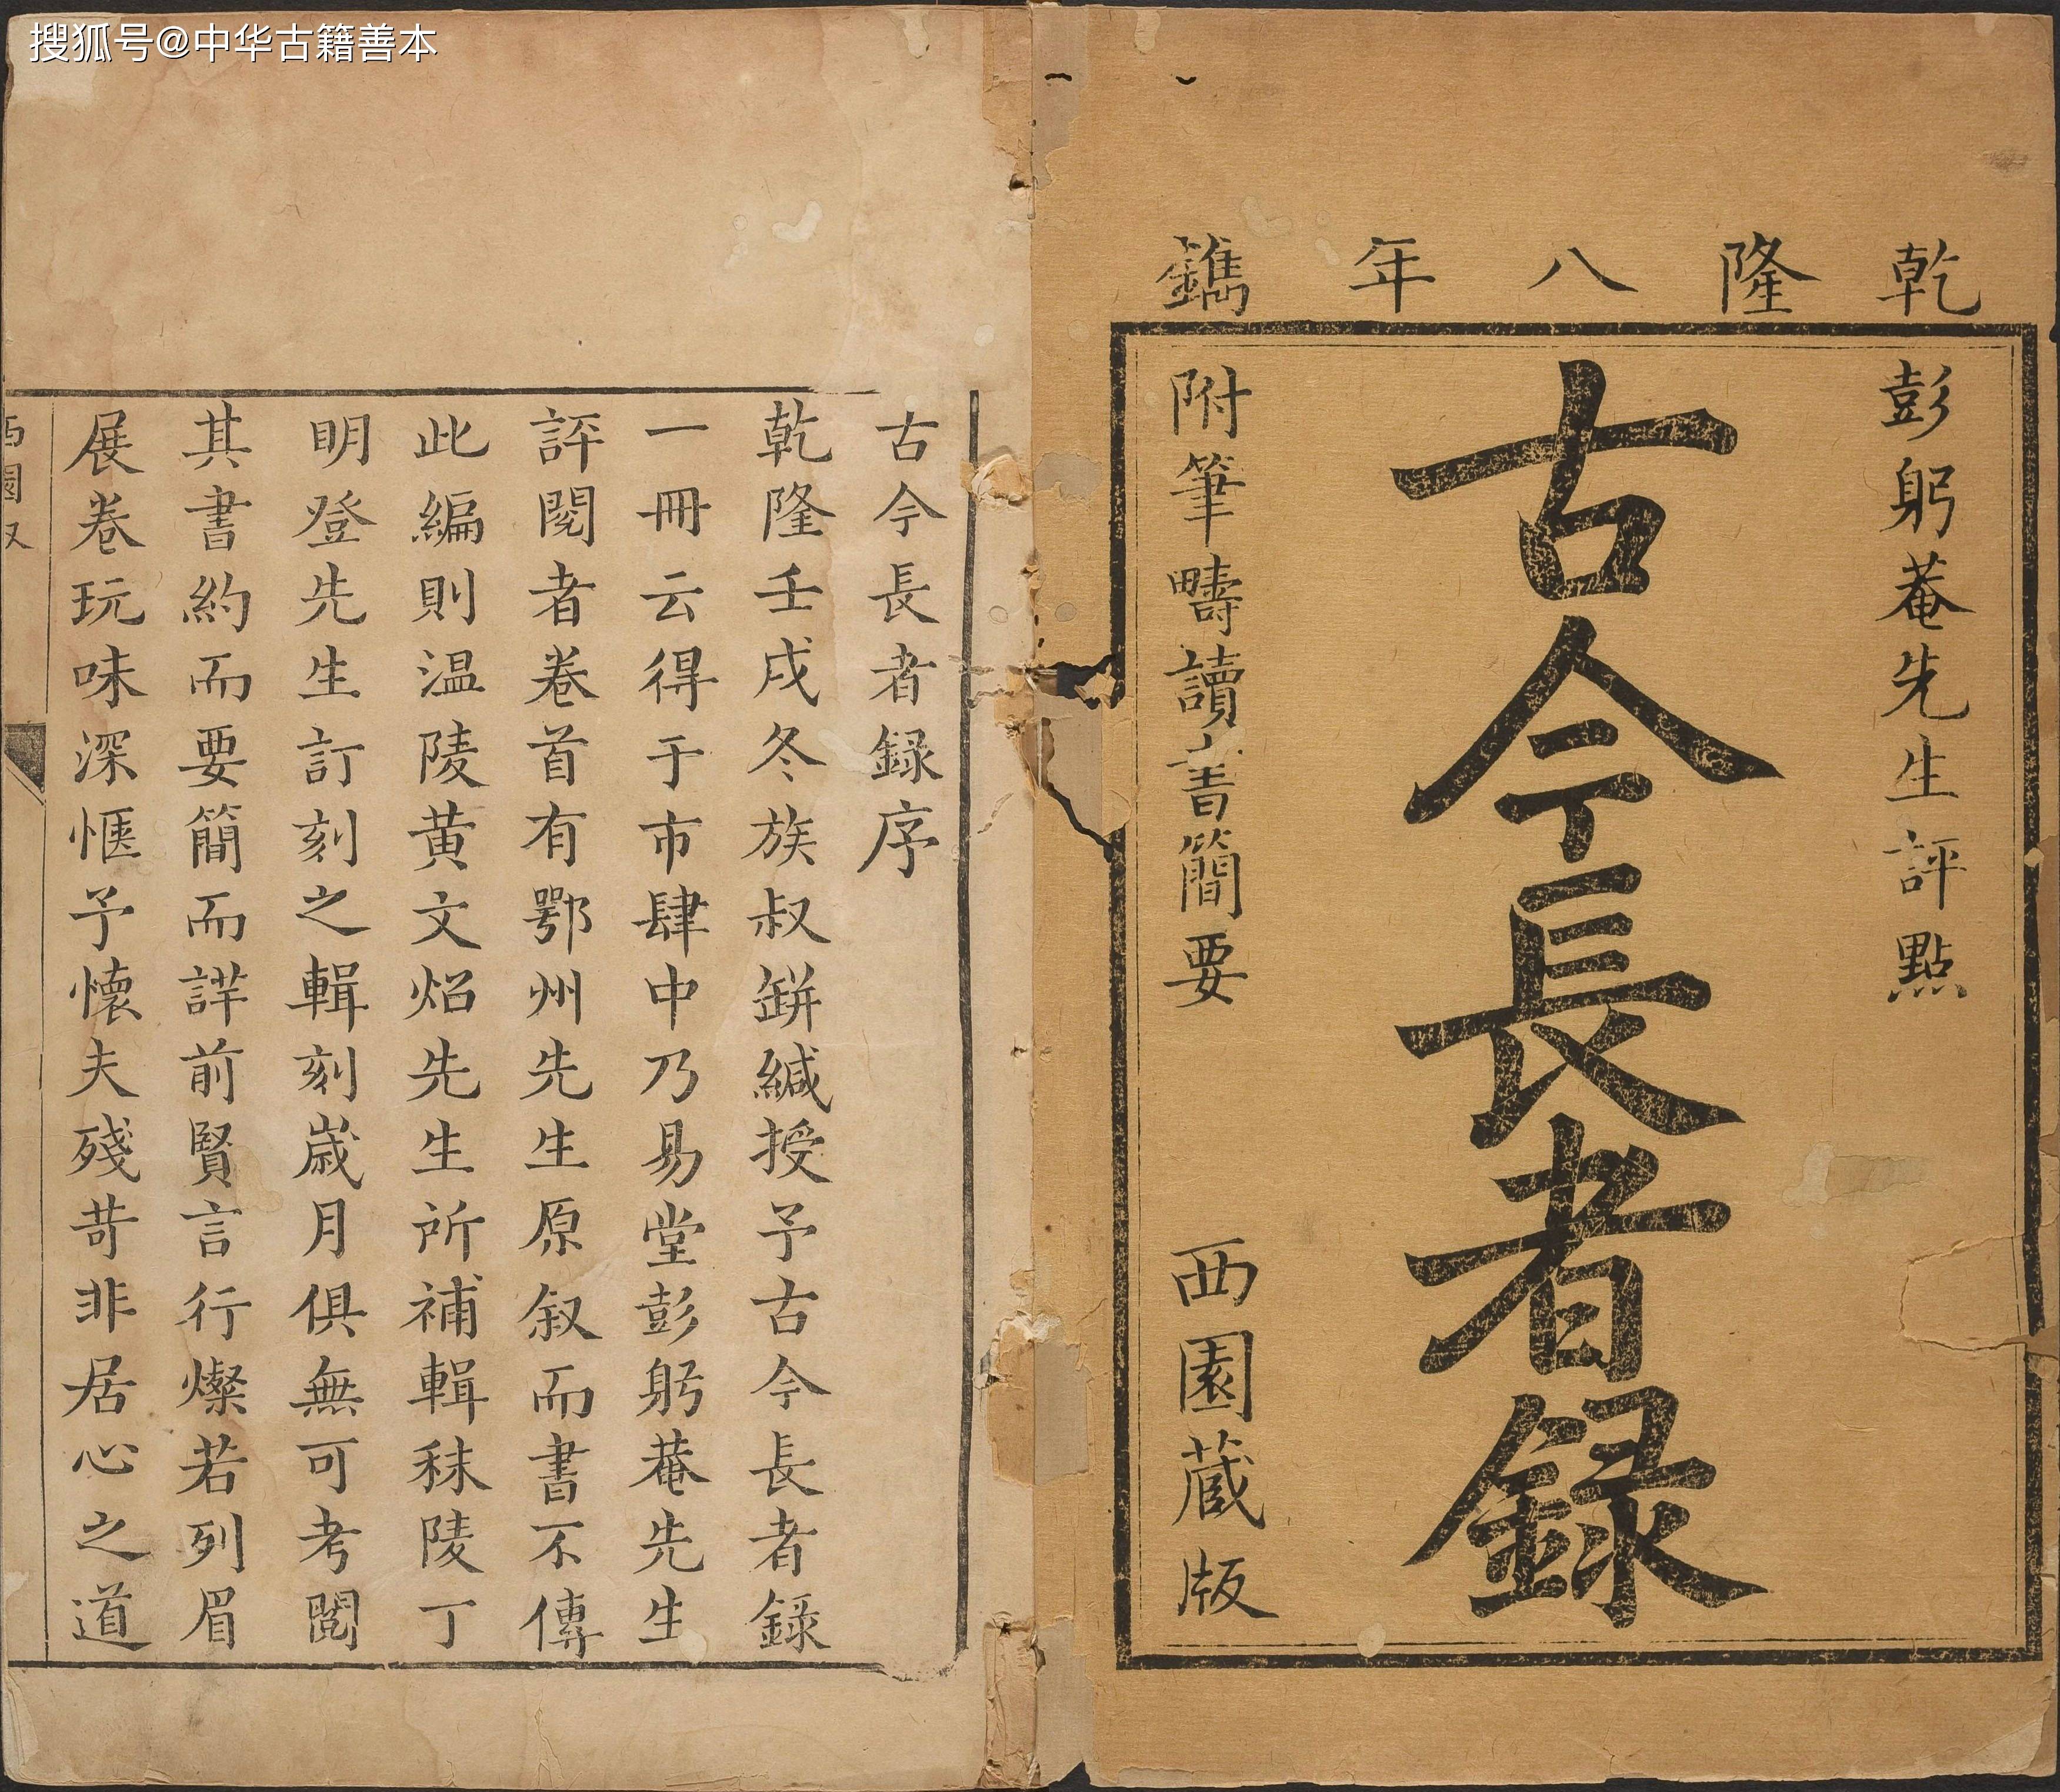 搜狐号@中华古籍善本
乾隆八年鐫
彭躬菴先生評點
古今長者録
附筆疇讀書簡要
西園蔵版
古今長者録序
乾隆壬戌冬族叔缾緘授予古今長者録
一冊云得于市肆中乃易堂彭躬菴先生
評閱者卷首有鄂州先生原叙而書不傳
此編則温陵黄文炤先生所補輯秣陵丁
明登先生訂刻之輯刻歳月俱無可考閱
其書約而要簡而詳前賢言行燦若列眉
展卷玩味深愜予懷夫殘苛非居心之道